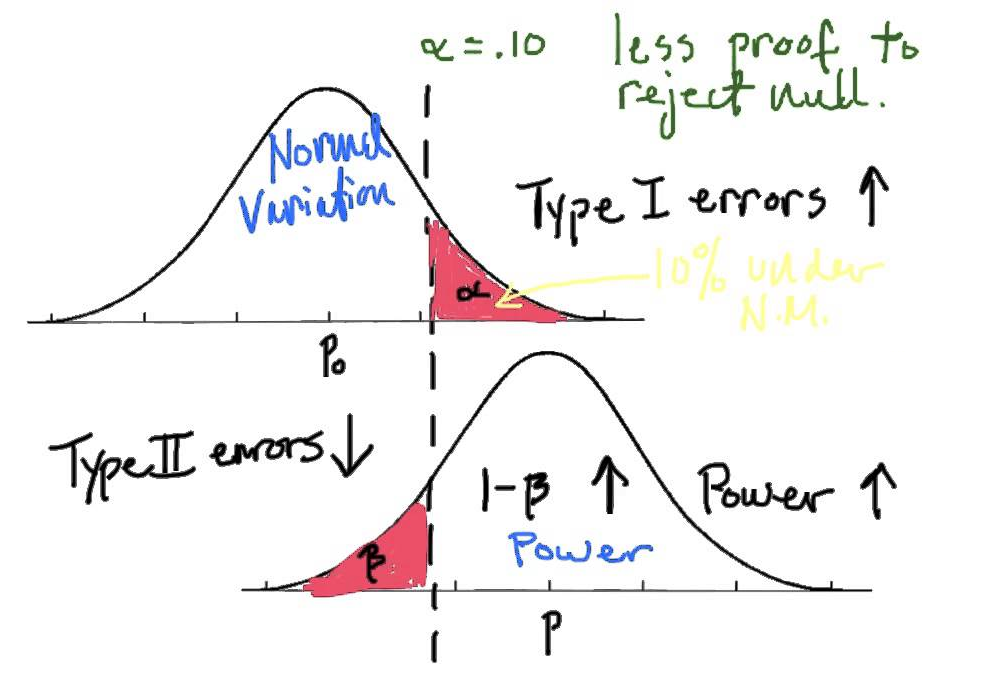 α = .10 less proof to
reject null.
Normal
Variation
Type I errors ↑
α
10% under
N.M.
P₀
Type II errors ↓
1-β ↑ Power ↑
Power
β
P